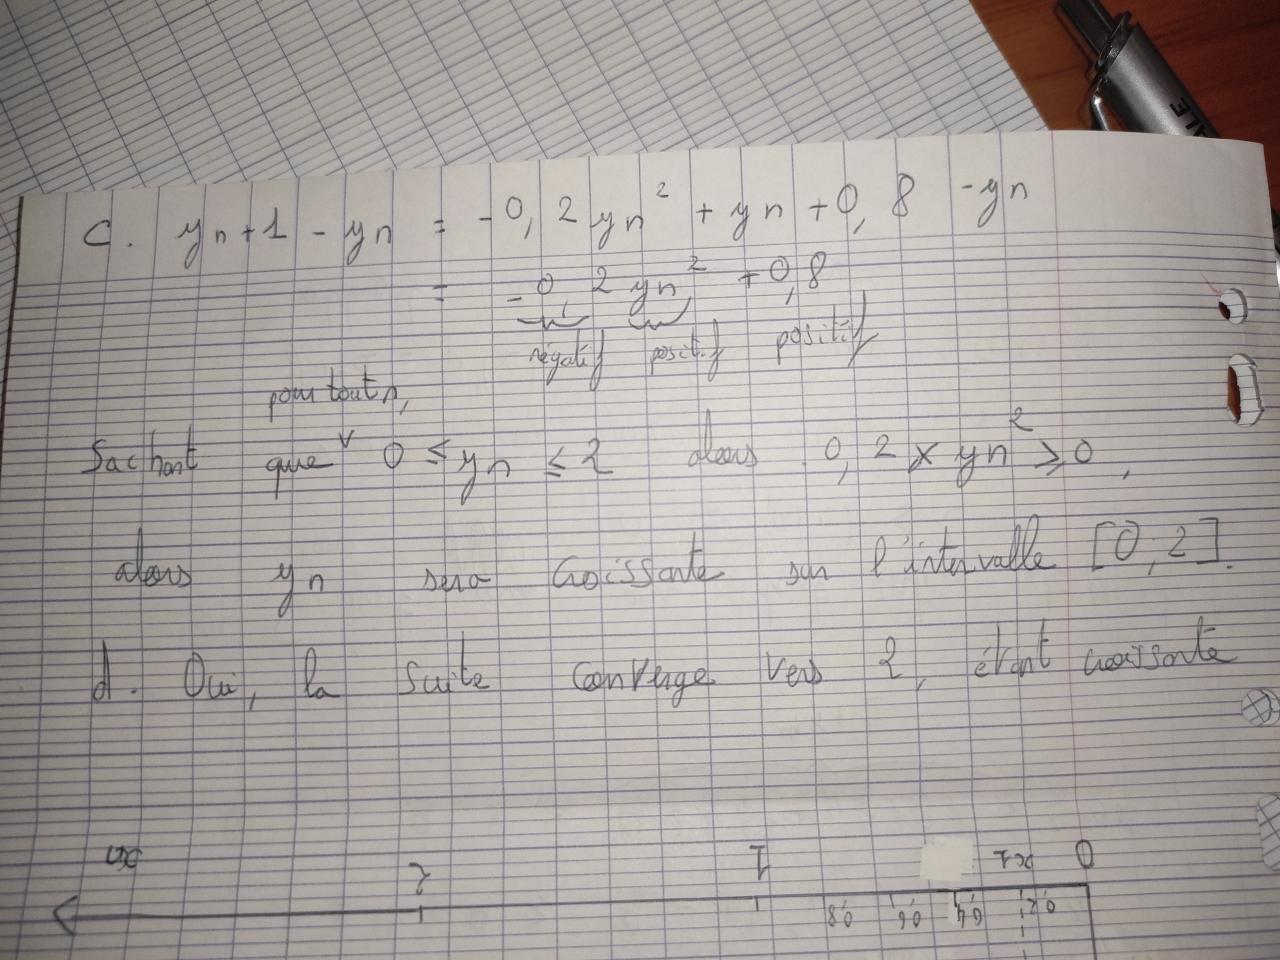 c. yn+1 - yn = -0,2 yn² + yn + 0,8 - yn
= -0,2 yn² + 0,8
négatif positif positif
pour tout n,
Sachant que 0 ≤ yn ≤ 2 alors 0,2 × yn² ≥ 0,
alors yn sera croissante sur l'intervalle [0; 2].
d. Oui, la suite converge vers 2, étant croissante
0 x1 1 2 xn
0,2 0,4 0,6 0,8